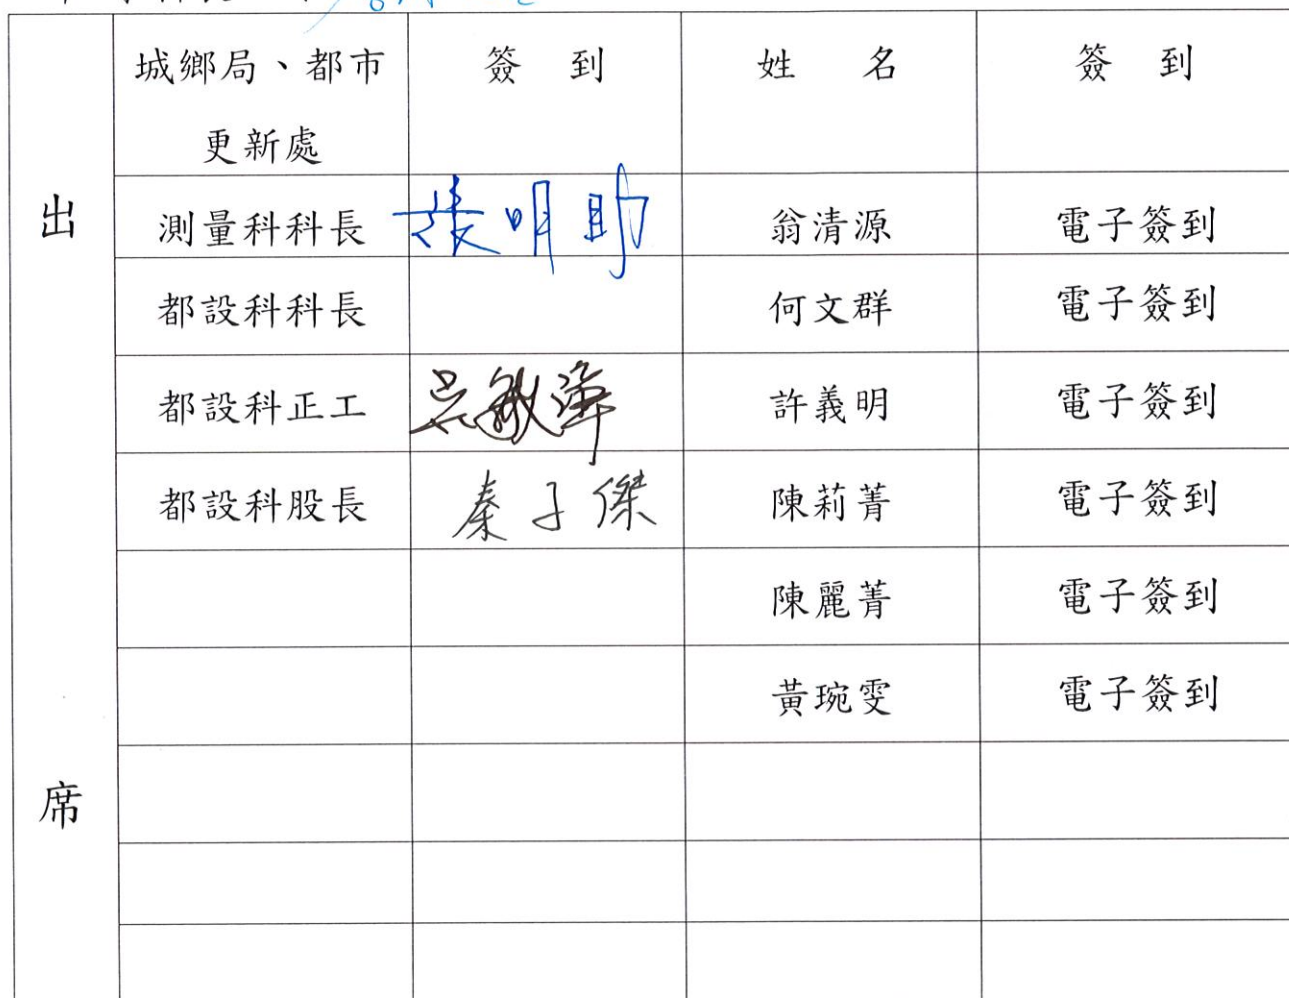 城鄉局、都市 簽 到 姓 名 簽 到
更新處
出
測量科科長 張明助 翁清源 電子簽到
都設科科長 何文群 電子簽到
都設科正工 吳敏 許義明 電子簽到
都設科股長 秦子傑 陳莉菁 電子簽到
陳麗菁 電子簽到
黃琬雯 電子簽到
席